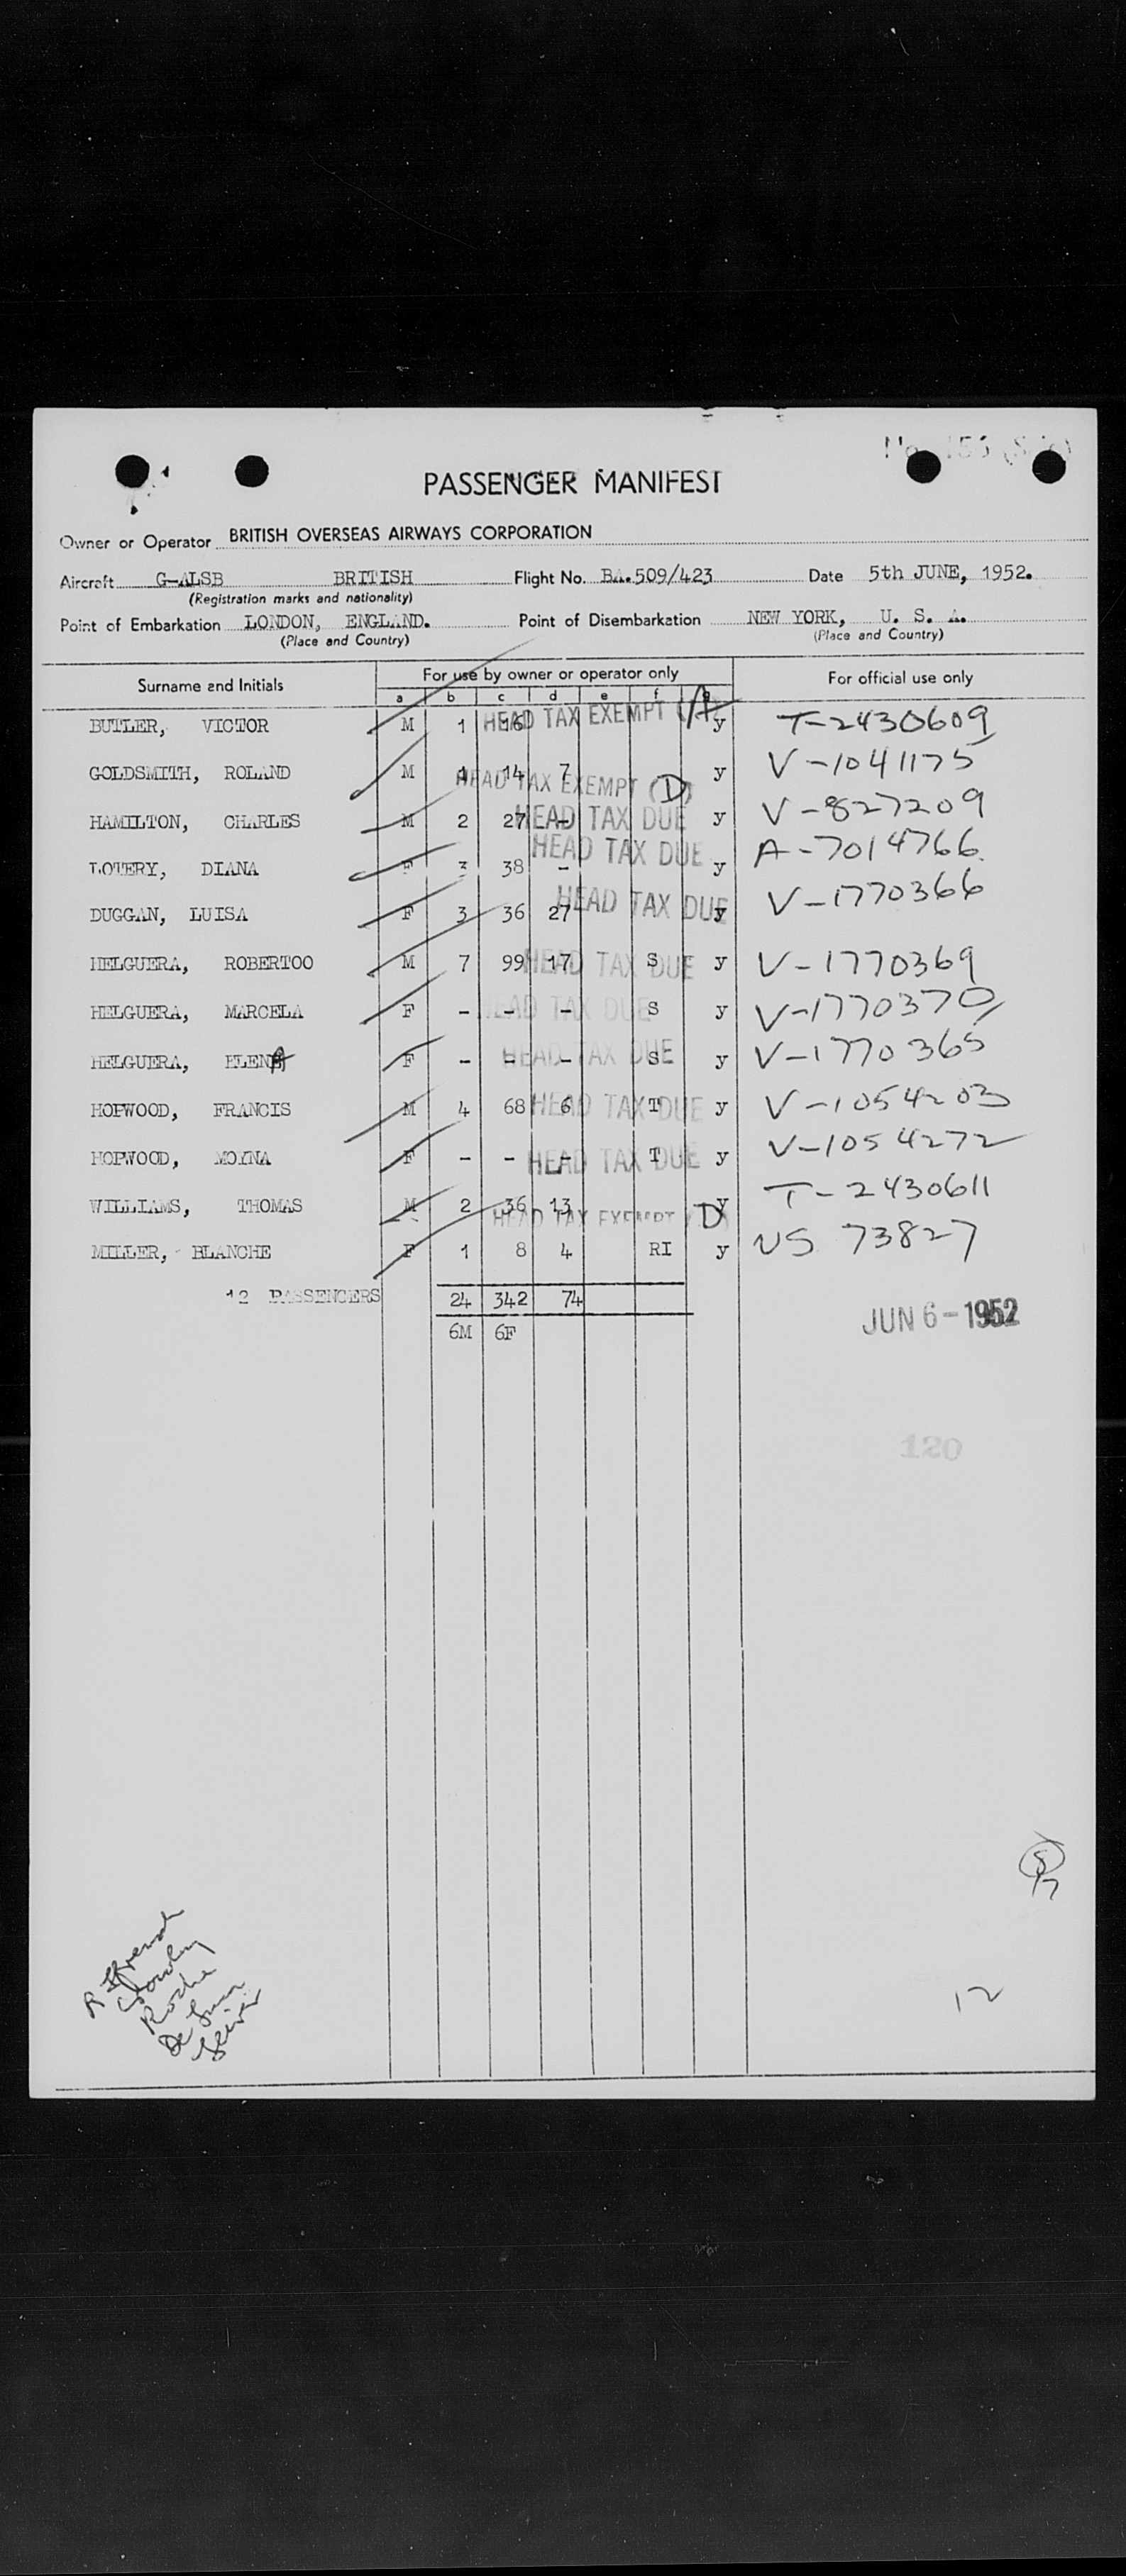 PASSENGER MANIFEST
Owner or Operator BRITISH OVERSEAS AIRWAYS CORPORATION
Aircraft G-ALSB BRITISH Flight No. BA.509/423 Date 5th JUNE, 1952.
(Registration marks and nationality)
Point of Embarkation LONDON, ENGLAND. Point of Disembarkation NEW YORK, U. S. A.
(Place and Country) (Place and Country)
Surname and Initials For use by owner or operator only For official use only
a b c d e f g
BUTLER, VICTOR M 1 16 HEAD TAX EXEMPT (A) y T-2430609
GOLDSMITH, ROLAND M 1 14 7 y V-1041175
HEAD TAX EXEMPT (D)
HAMILTON, CHARLES M 2 27 - HEAD TAX DUE y V-827209
LOTERY, DIANA F 3 38 - HEAD TAX DUE y A-7014766
DUGGAN, LUISA F 3 36 27 HEAD TAX DUE y V-1770366
HELGUERA, ROBERTOO M 7 99 17 HEAD TAX DUE S y V-1770369
HELGUERA, MARCELA F - - - HEAD TAX DUE S y V-1770370
HELGUERA, ELENA F - - - HEAD TAX DUE S y V-1770365
HOPWOOD, FRANCIS M 4 68 6 HEAD TAX DUE T y V-1054203
HOPWOOD, MOYNA F - - - HEAD TAX DUE T y V-1054272
WILLIAMS, THOMAS M 2 36 13 y T-2430611
HEAD TAX EXEMPT D
MILLER, BLANCHE F 1 8 4 RI y US 73827
12 PASSENGERS 24 342 74
6M 6F
JUN 6-1952
120
Roche
12